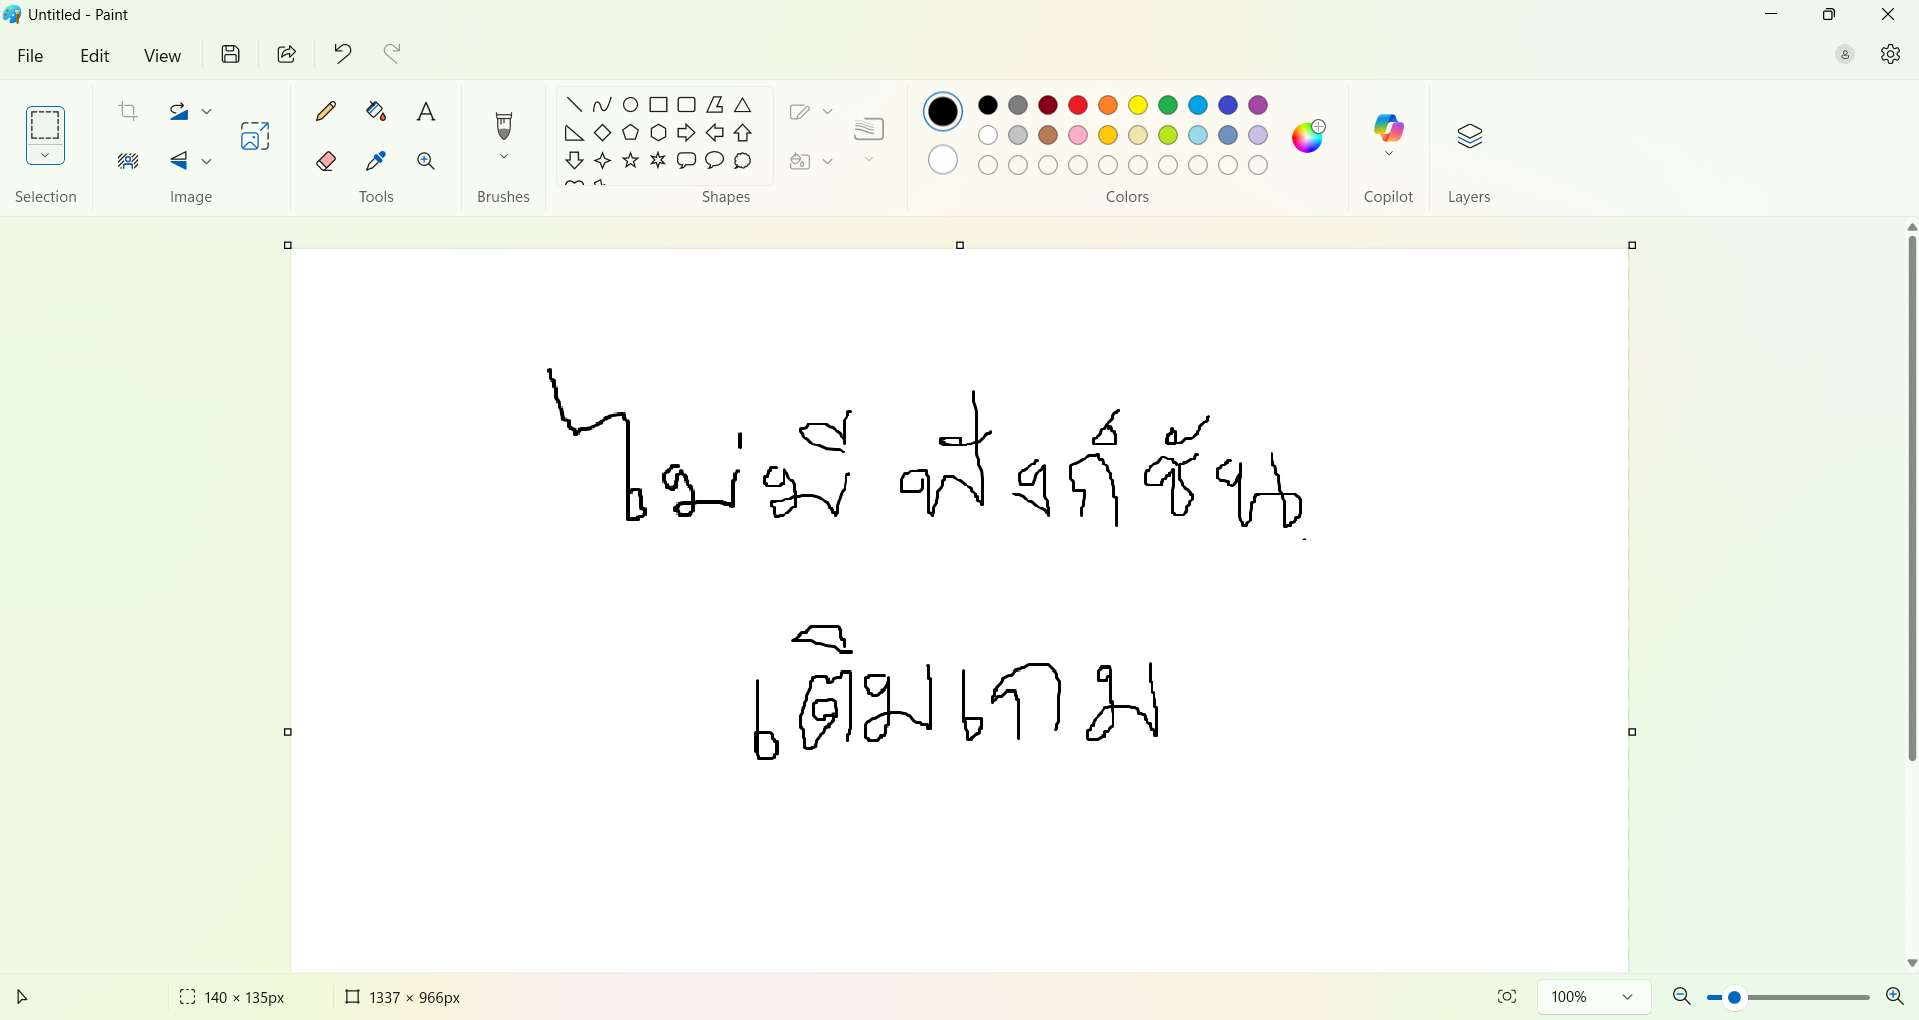 Untitled - Paint
File Edit View
Selection Image Tools Brushes Shapes Colors Copilot Layers
ไม่มี ฟังก์ชัน
เติมเกม
140 × 135px 1337 × 966px 100%